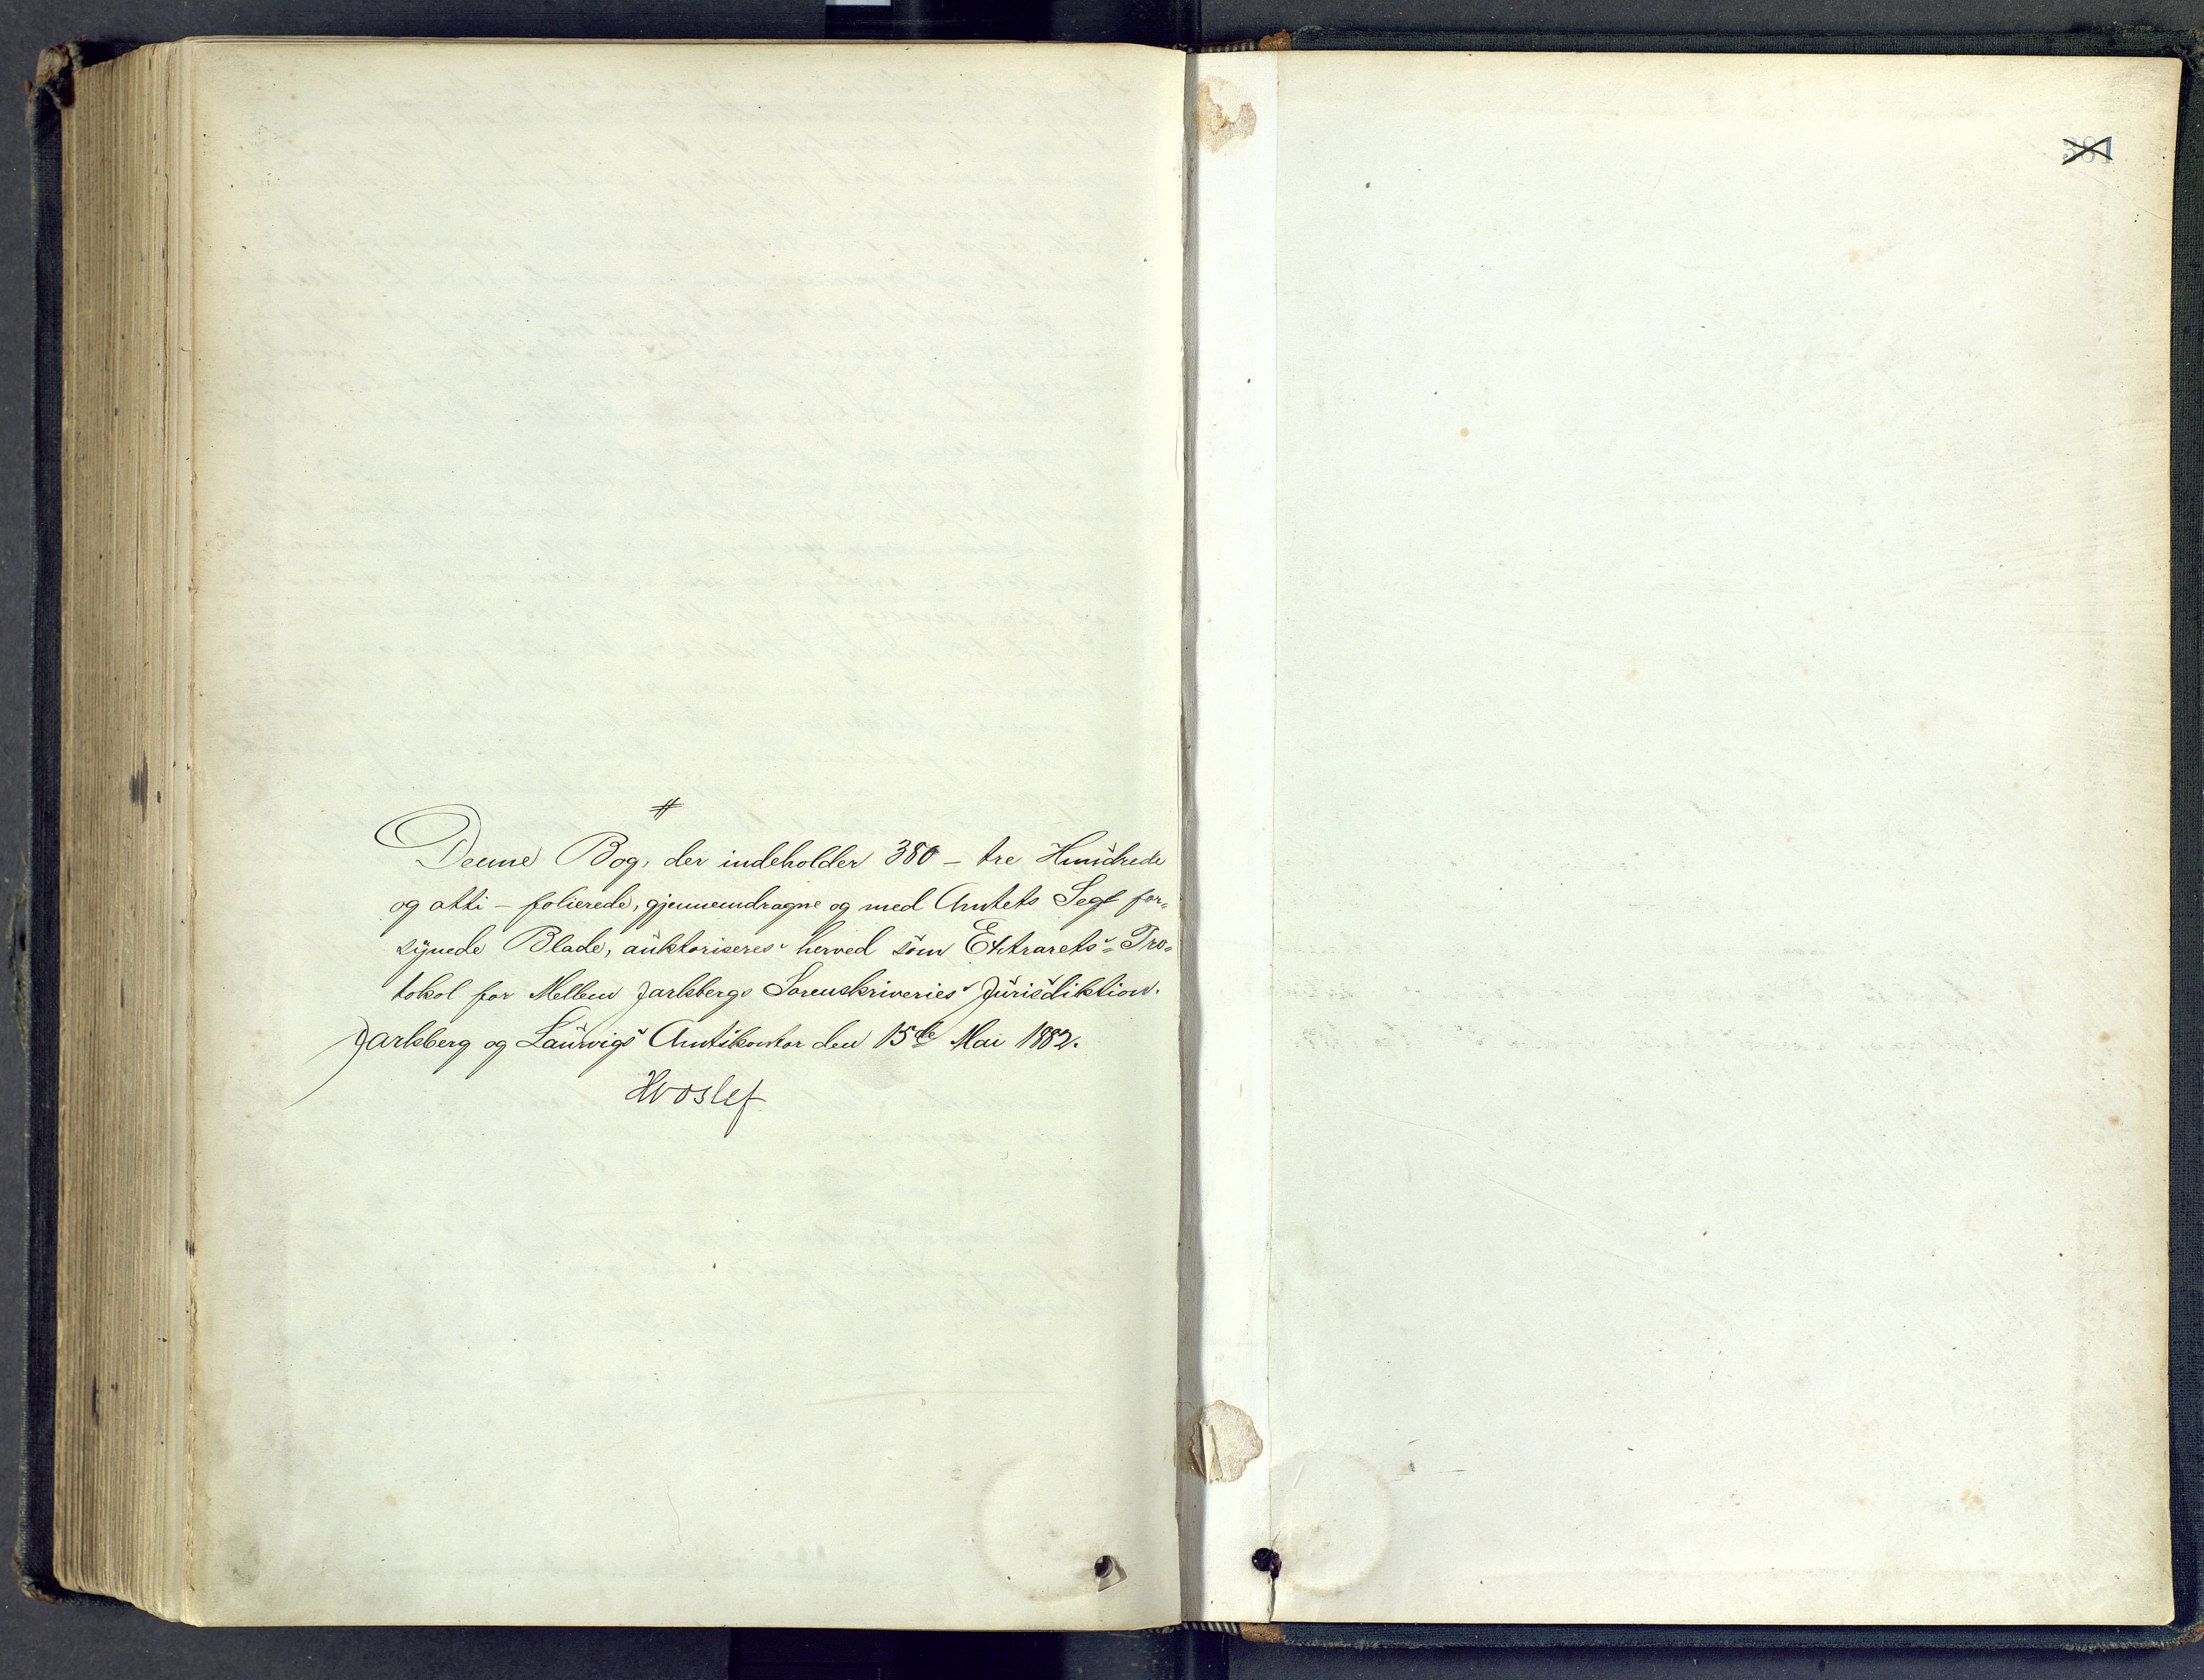 381
#
Denne Bog, der indeholder 380 - tre Hundrede
og atti - folierede, gjennemdragne og med Amtets Segl for-
synede Blade, auktoriseres herved som Extrarets-Pro-
tokol for Mellem Jarlsbergs Sorenskriveries Jurisdiktion.
Jarlsberg og Laurvigs Amtskontor den 15de Mai 1882.
Hvoslef